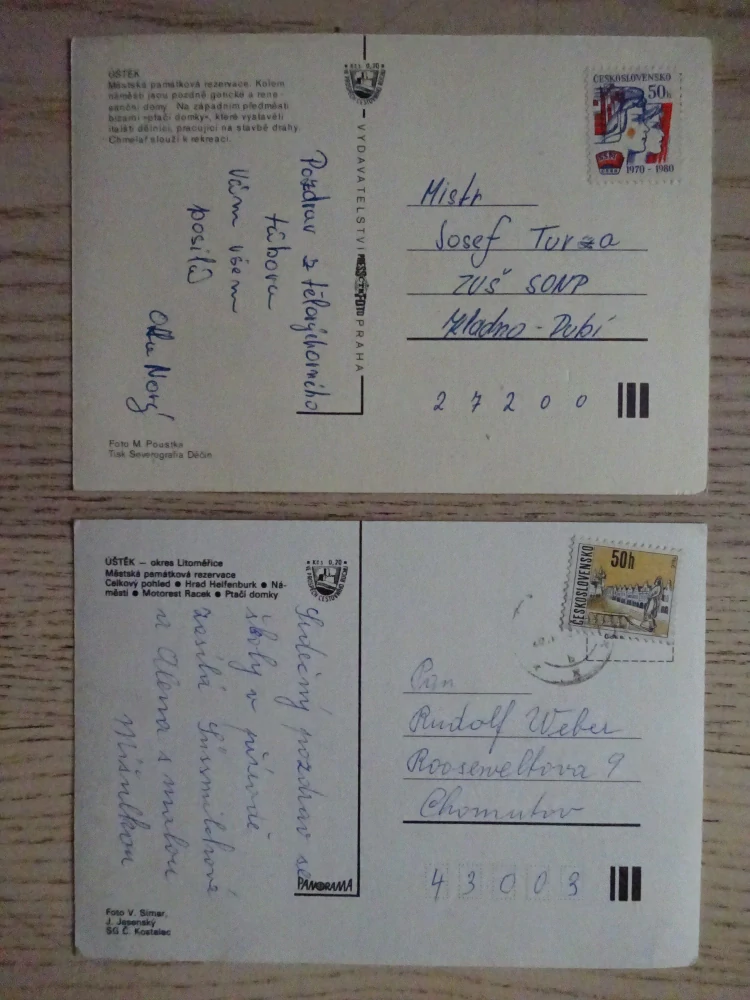 ÚŠTĚK
Městská památková rezervace. Kolem
náměstí jsou pozdně gotické a rene-
sanční domy. Na západním předměstí
bizarní »ptačí domky«, které vystavěli
italští dělníci, pracující na stavbě dráhy.
Chmelař slouží k rekreaci.
Pozdrav z tělovýchovného
tábora
Vám všem
posílá
Nový
Foto M. Poustka
Tisk Severografia Děčín
Kčs 0,70
VYDAVATELSTVÍ PRESSFOTO PRAHA
ČESKOSLOVENSKO
50h
1970 - 1980
Mistr
Josef
ZUŠ SONP
Kladno - Dubí
27200
ÚŠTĚK — okres Litoměřice
Městská památková rezervace
Celkový pohled ● Hrad Helfenburk ● Ná-
městí ● Motorest Racek ● Ptačí domky
Kčs 0,70
Srdečný pozdrav ze
školy v přírodě
zasílá Süssmilchová
Alena s malou
Míšulkou
PANORAMA
Foto V. Šimar,
J. Jasenský
SG Č. Kostelec
ČESKOSLOVENSKO
50h
Pan
Rudolf Weber
Rooseveltova 9
Chomutov
43003